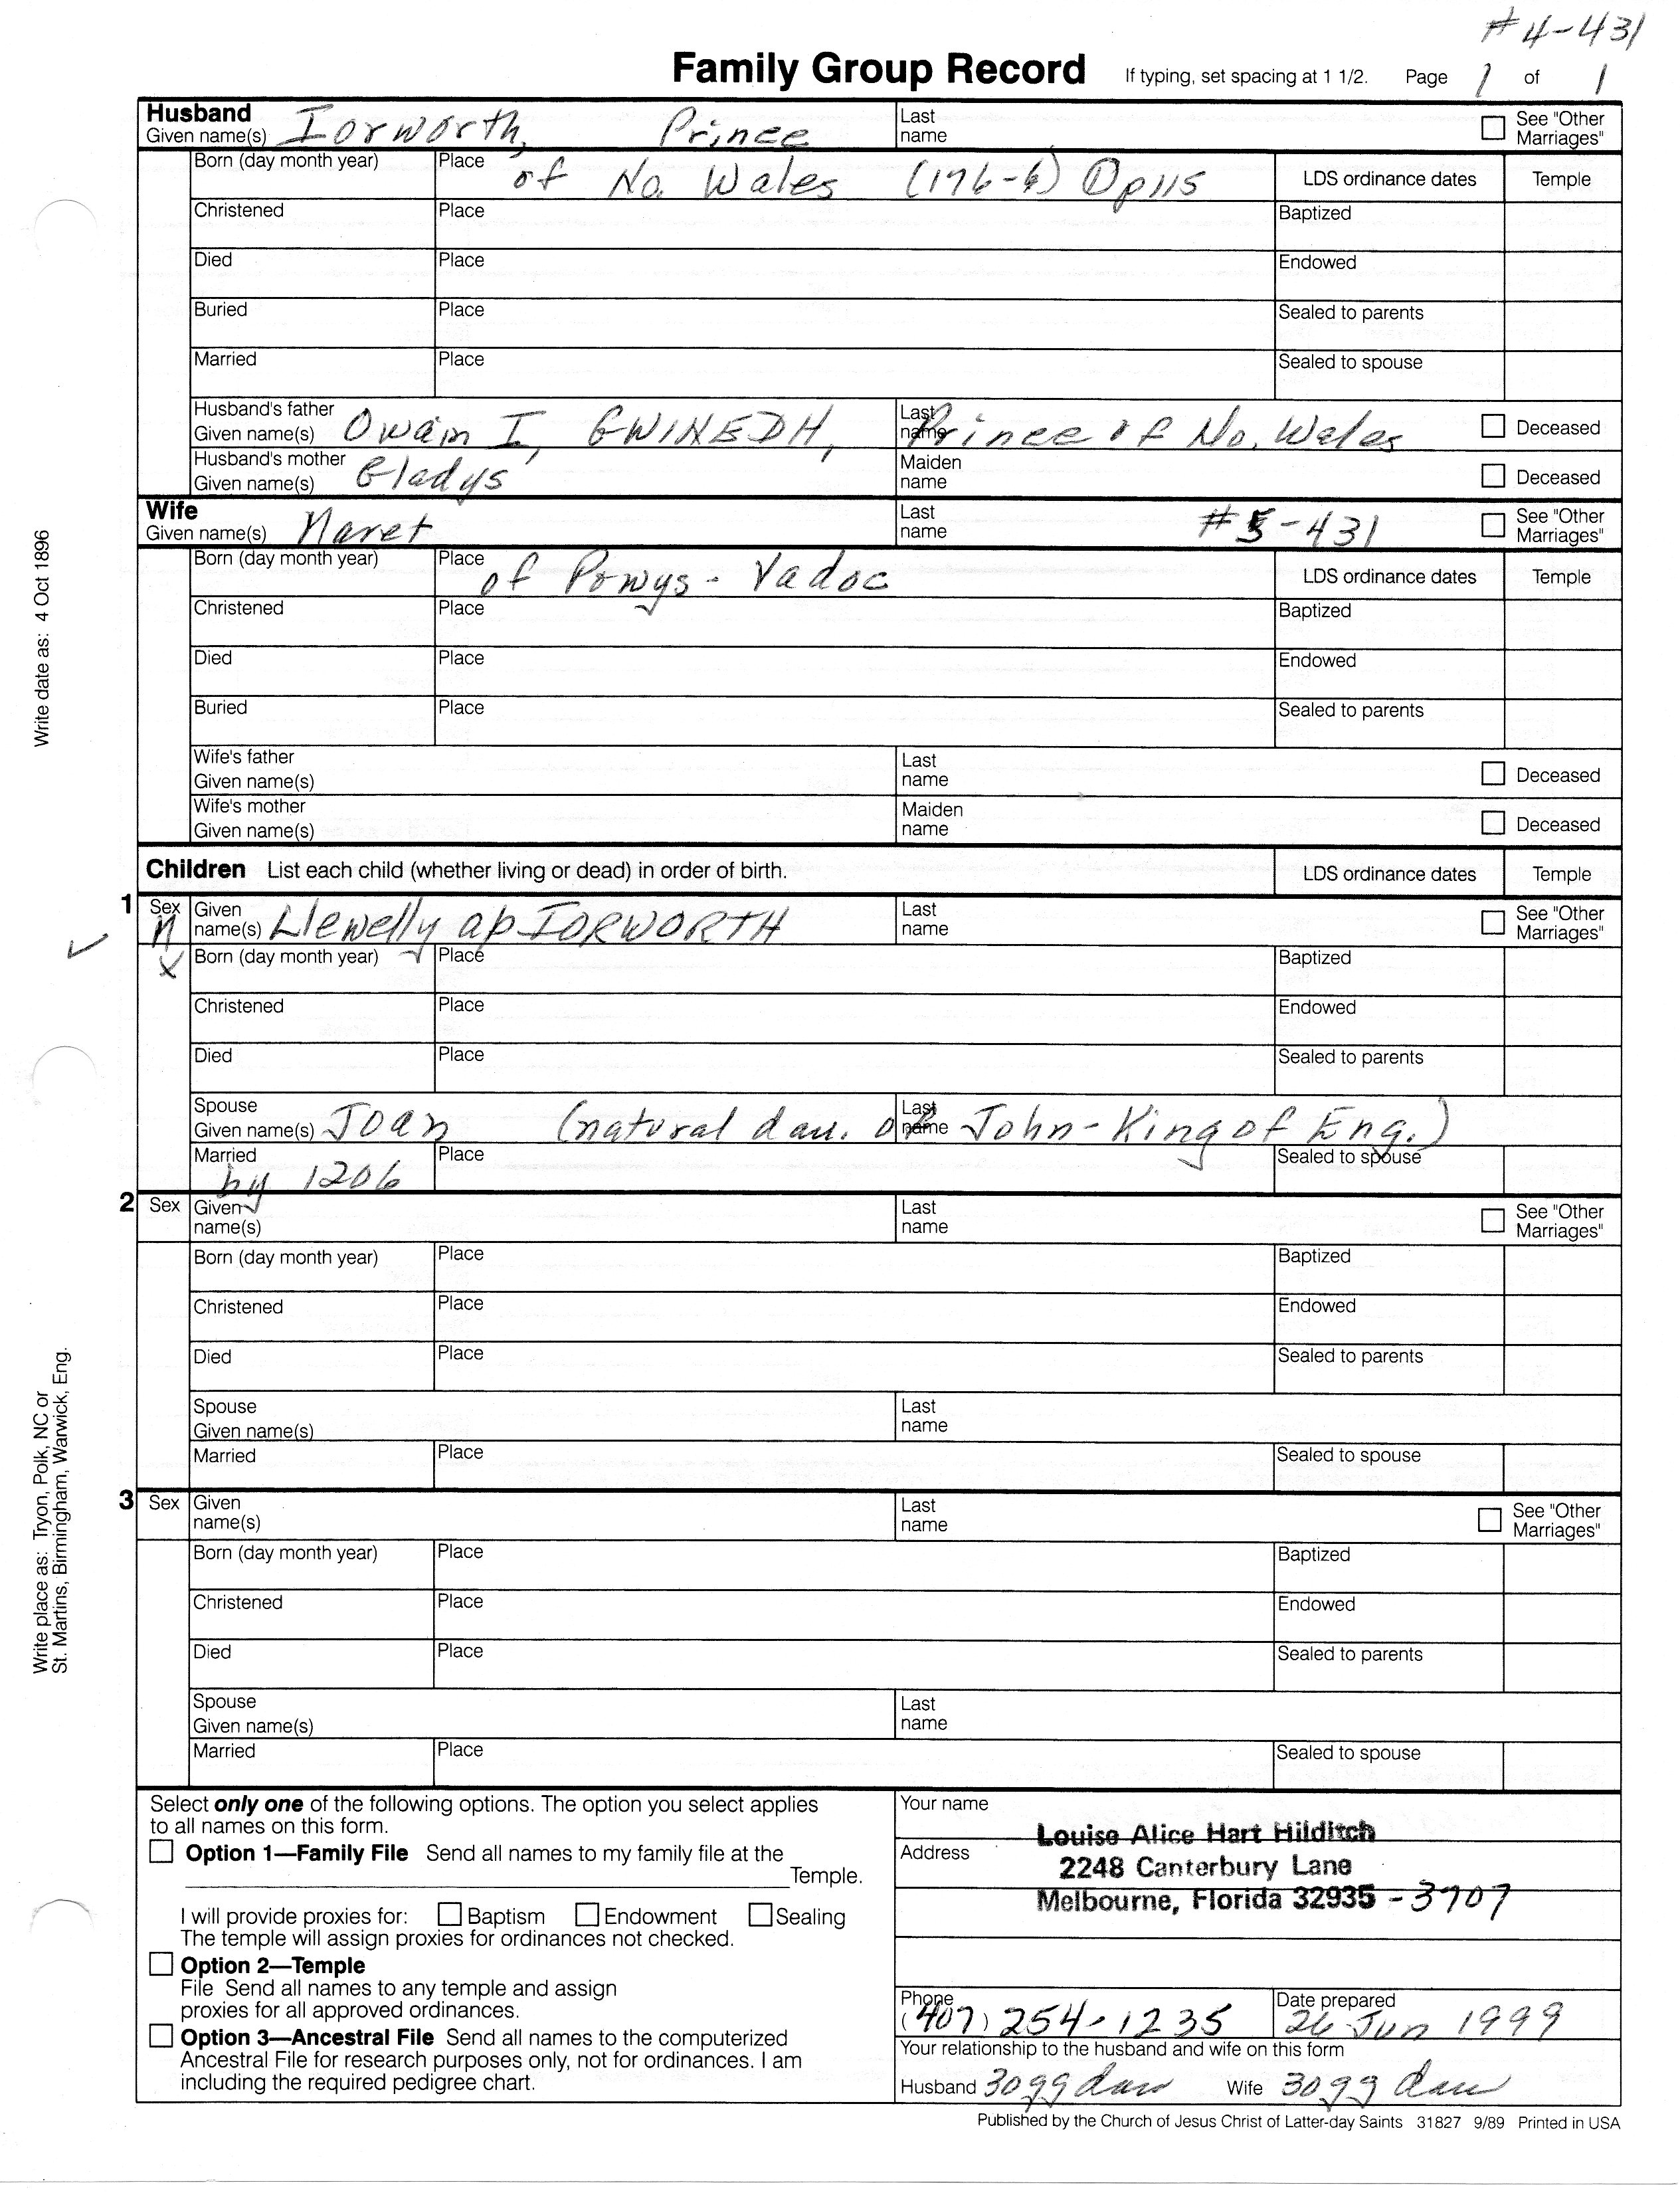 #4-431
Family Group Record If typing, set spacing at 1 1/2. Page 1 of 1
Husband
Given name(s) Iorworth, Prince Last name See "Other Marriages"
Born (day month year) Place of No. Wales (176-6) Op115 LDS ordinance dates Temple
Christened Place Baptized
Died Place Endowed
Buried Place Sealed to parents
Married Place Sealed to spouse
Husband's father
Given name(s) Owain I, GWINEDH, Last name Prince of No. Wales Deceased
Husband's mother
Given name(s) Gladys Maiden name Deceased
Wife
Given name(s) Maret Last name #5-431 See "Other Marriages"
Born (day month year) Place of Powys - Vadoc LDS ordinance dates Temple
Christened Place Baptized
Died Place Endowed
Buried Place Sealed to parents
Wife's father
Given name(s) Last name Deceased
Wife's mother
Given name(s) Maiden name Deceased
Children List each child (whether living or dead) in order of birth. LDS ordinance dates Temple
1 Sex M Given name(s) Llewelly ap IORWORTH Last name See "Other Marriages"
X Born (day month year) Place Baptized
Christened Place Endowed
Died Place Sealed to parents
Spouse
Given name(s) Joan (natural dau. of Last name John - King of Eng.)
Married by 1206 Place Sealed to spouse
2 Sex Given name(s) Last name See "Other Marriages"
Born (day month year) Place Baptized
Christened Place Endowed
Died Place Sealed to parents
Spouse
Given name(s) Last name
Married Place Sealed to spouse
3 Sex Given name(s) Last name See "Other Marriages"
Born (day month year) Place Baptized
Christened Place Endowed
Died Place Sealed to parents
Spouse
Given name(s) Last name
Married Place Sealed to spouse
Select only one of the following options. The option you select applies
to all names on this form.
Option 1—Family File Send all names to my family file at the
Temple.
I will provide proxies for: Baptism Endowment Sealing
The temple will assign proxies for ordinances not checked.
Option 2—Temple
File Send all names to any temple and assign
proxies for all approved ordinances.
Option 3—Ancestral File Send all names to the computerized
Ancestral File for research purposes only, not for ordinances. I am
including the required pedigree chart.
Your name Louise Alice Hart Hilditch
Address 2248 Canterbury Lane
Melbourne, Florida 32935 - 3707
Phone (407) 254-1235 Date prepared 26 Jun 1999
Your relationship to the husband and wife on this form
Husband 30 gg dau Wife 30 gg dau
Published by the Church of Jesus Christ of Latter-day Saints 31827 9/89 Printed in USA
Write date as: 4 Oct 1896
Write place as: Tryon, Polk, NC or
St. Martins, Birmingham, Warwick, Eng.